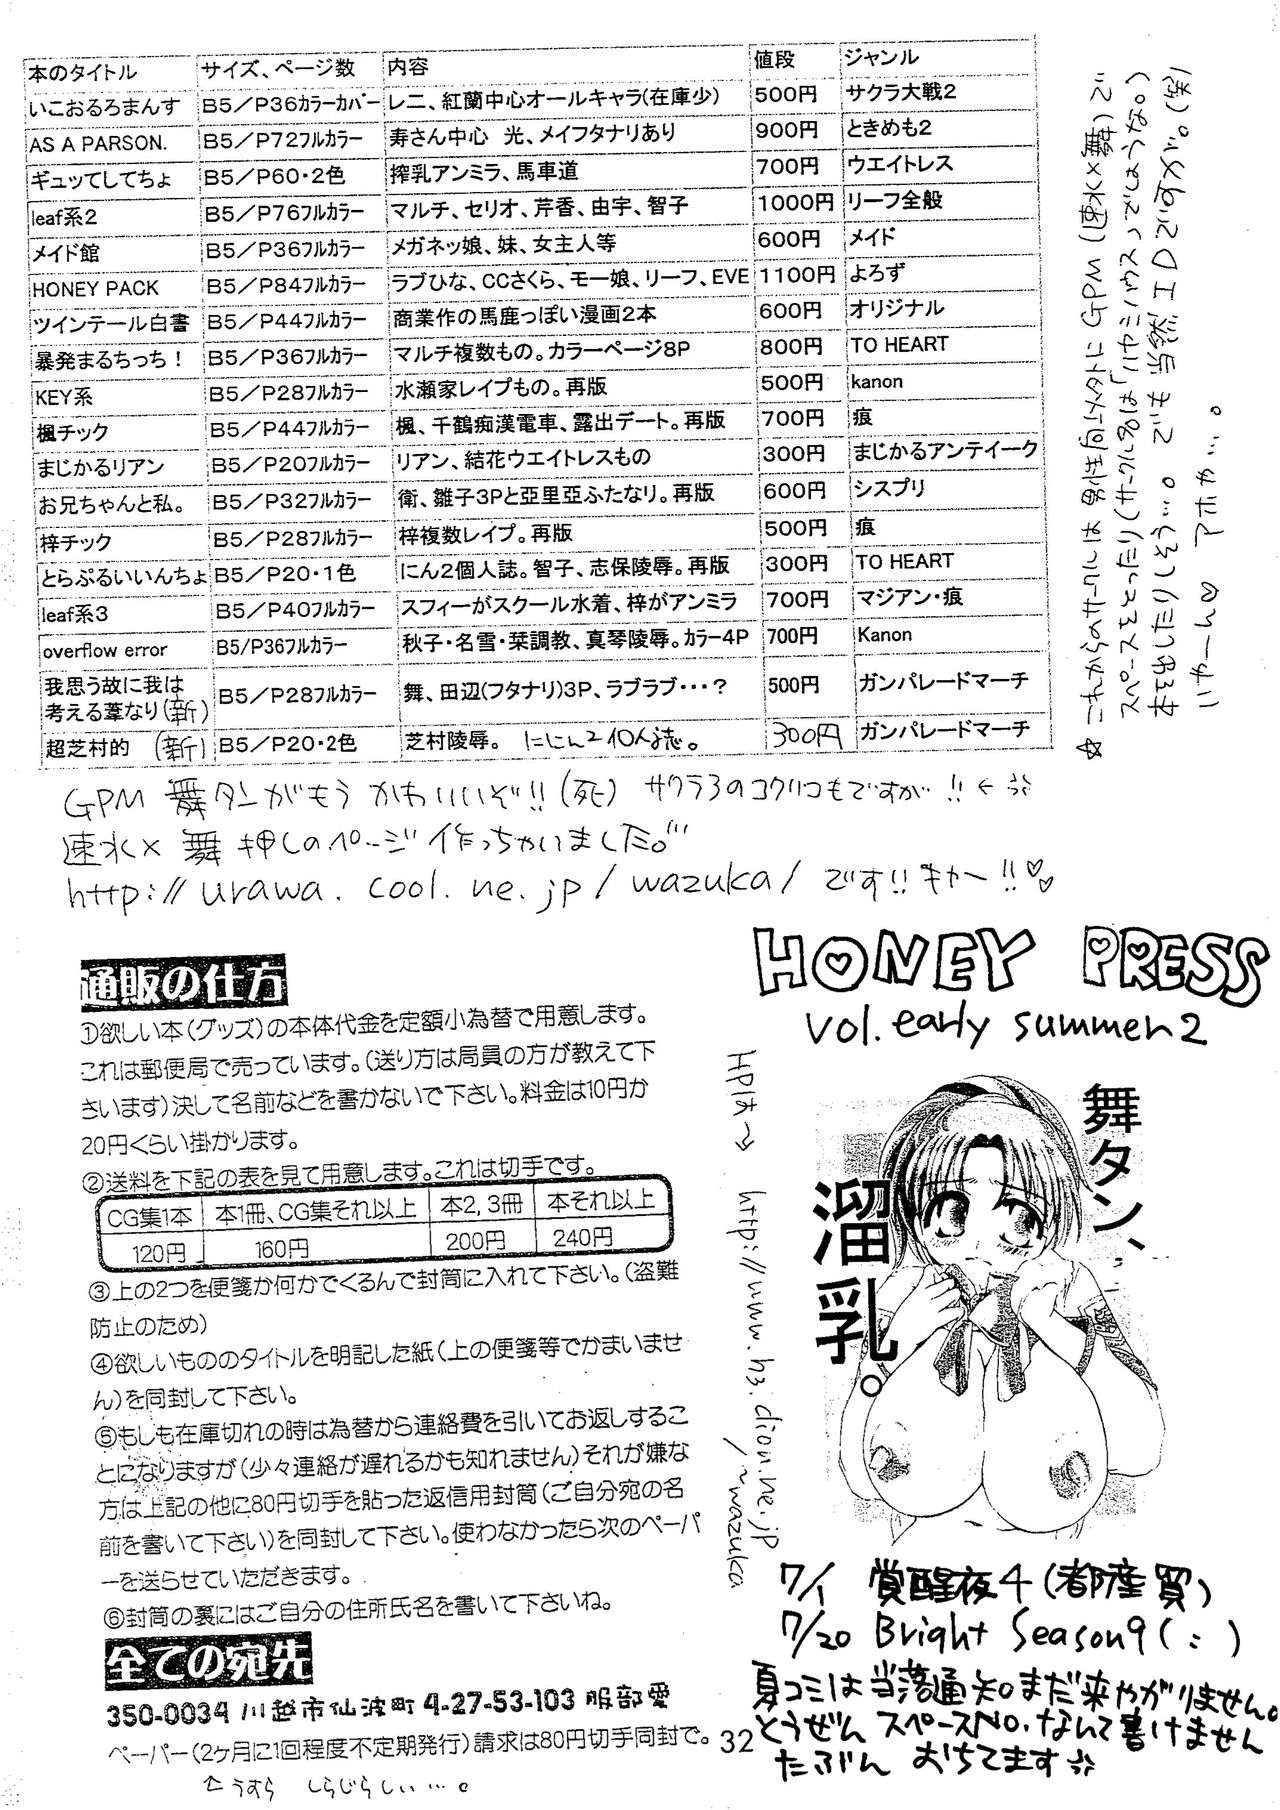 本のタイトル サイズ、ページ数 内容 値段 ジャンル
いこおるろまんす B5／P36カラーカバー レニ、紅蘭中心オールキャラ(在庫少) 500円 サクラ大戦2
AS A PARSON. B5／P72フルカラー 寿さん中心 光、メイフタナリあり 900円 ときめも2
ギュッてしてちょ B5／P60・2色 搾乳アンミラ、馬車道 700円 ウエイトレス
leaf系2 B5／P76フルカラー マルチ、セリオ、芹香、由宇、智子 1000円 リーフ全般
メイド館 B5／P36フルカラー メガネッ娘、妹、女主人等 600円 メイド
HONEY PACK B5／P84フルカラー ラブひな、CCさくら、モー娘、リーフ、EVE 1100円 よろず
ツインテール白書 B5／P44フルカラー 商業作の馬鹿っぽい漫画2本 600円 オリジナル
暴発まるちっち！ B5／P36フルカラー マルチ複数もの。カラーページ8P 800円 TO HEART
KEY系 B5／P28フルカラー 水瀬家レイプもの。再版 500円 kanon
楓チック B5／P44フルカラー 楓、千鶴痴漢電車、露出デート。再版 700円 痕
まじかるリアン B5／P20フルカラー リアン、結花ウエイトレスもの 300円 まじかるアンテイーク
お兄ちゃんと私。 B5／P32フルカラー 衛、雛子3Pと亜里亜ふたなり。再版 600円 シスプリ
梓チック B5／P28フルカラー 梓複数レイプ。再版 500円 痕
とらぶるいいんちょ B5／P20・1色 にん2個人誌。智子、志保陵辱。再版 300円 TO HEART
leaf系3 B5／P40フルカラー スフィーがスクール水着、梓がアンミラ 700円 マジアン・痕
overflow error B5/P36フルカラー 秋子・名雪・栞調教、真琴陵辱。カラー4P 700円 Kanon
我思う故に我は
考える葦なり(新) B5／P28フルカラー 舞、田辺(フタナリ)3P、ラブラブ・・・？ 500円 ガンパレードマーチ
超芝村的 (新) B5／P20・2色 芝村陵辱。 ににん2個人誌。 300円 ガンパレードマーチ
☆これからのサークルは男性向以外にGPM(速水×舞)で
スペースをとったり(サークル名は「ハヤミハウス」でしょうな。)
本を出したりしそう…。でも当然エロですがゞ。(笑)
いやーん♡ アホか…。
GPM 舞タンがもうかわいいぞ!!(死) サクラ3のコクリコもですが!!←
速水×舞押しのページ作っちゃいました。
http://urawa.cool.ne.jp/wazuka/ です!! キャー!!♡♡
HONEY PRESS
vol. early summer2
通販の仕方
①欲しい本(グッズ)の本体代金を定額小為替で用意します。
これは郵便局で売っています。(送り方は局員の方が教えて下
さいます)決して名前などを書かないで下さい。料金は10円か
20円くらい掛かります。
②送料を下記の表を見て用意します。これは切手です。
CG集1本 本1冊、CG集それ以上 本2,3冊 本それ以上
120円 160円 200円 240円
③上の2つを便箋か何かでくるんで封筒に入れて下さい。(盗難
防止のため)
④欲しいもののタイトルを明記した紙(上の便箋等でかまいませ
ん)を同封して下さい。
⑤もしも在庫切れの時は為替から連絡費を引いてお返しするこ
とになりますが(少々連絡が遅れるかも知れません)それが嫌な
方は上記の他に80円切手を貼った返信用封筒(ご自分宛の名
前を書いて下さい)を同封して下さい。使わなかったら次のペーパ
ーを送らせていただきます。
⑥封筒の裏にはご自分の住所氏名を書いて下さいね。
全ての宛先
350-0034 川越市仙波町 4-27-53-103 服部愛
ペーパー(2ヶ月に1回程度不定期発行)請求は80円切手同封で。
↑うすら しらじらしい…。
32
HPは→ http://www.h3.dion.ne.jp/~wazuka
舞タン、
溜乳。
7/1 覚醒夜4(都産貿)
7/20 Bright Season9(〃)
夏コミは当落通知まだ来やがりません。
とうぜんスペースNo.なんて書けません
たぶん おちてます